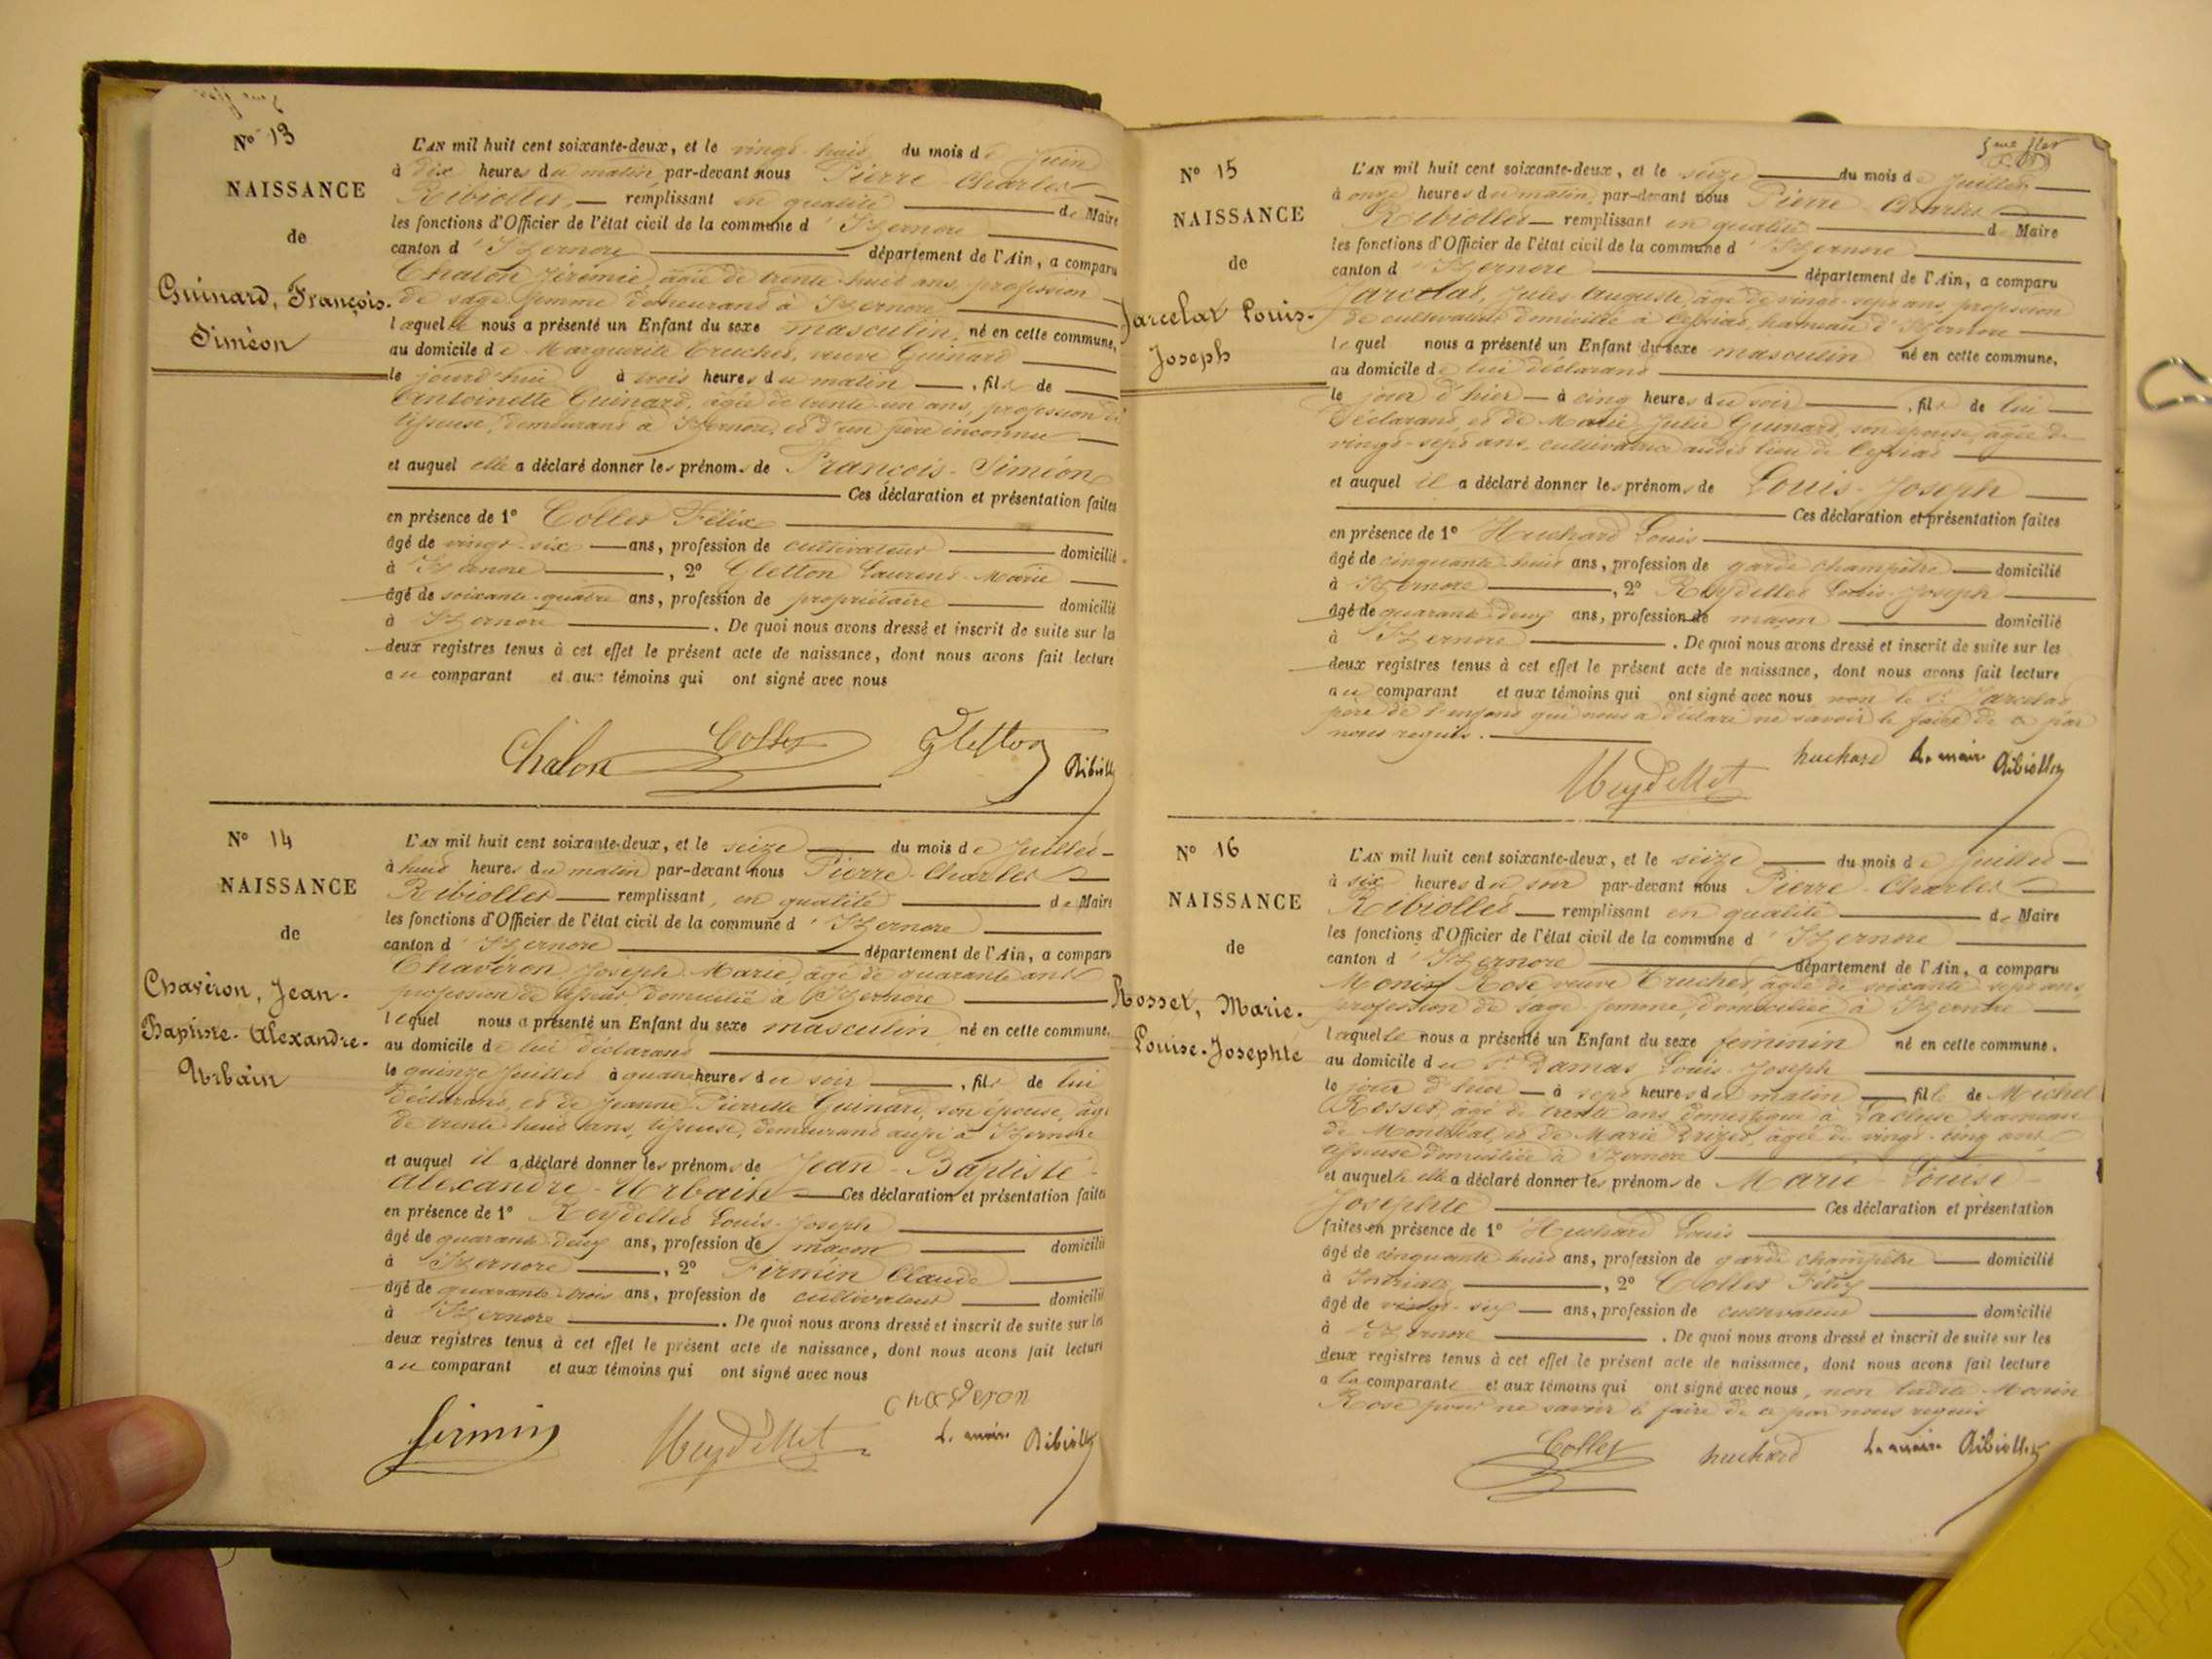 N° 13
NAISSANCE
de
Guinard, François-
Siméon
L'AN mil huit cent soixante-deux, et le vingt-huit du mois de Juin
à dix heures du matin par-devant nous Pierre-Charles
Ribiollet, remplissant en qualité de Maire
les fonctions d'Officier de l'état civil de la commune d'Izernore
canton d'Izernore département de l'Ain, a comparu
Chalon Jérémie, âgée de trente-huit ans, profession
de sage femme demeurant à Izernore
laquelle nous a présenté un Enfant du sexe masculin, né en cette commune,
au domicile de Marguerite Truchet, veuve Guinard
le jourd'hui à trois heures du matin, fils de
Antoinette Guinard, âgée de trente-un ans, profession de
tisseuse, demeurant à Izernore, et d'un père inconnu
et auquel elle a déclaré donner les prénoms de François-Siméon
Ces déclaration et présentation faites
en présence de 1° Collet Félix
âgé de vingt-six ans, profession de cultivateur domicilié
à Izernore, 2° Gletton Laurent-Marie
âgé de soixante-quatre ans, profession de propriétaire domicilié
à Izernore. De quoi nous avons dressé et inscrit de suite sur les
deux registres tenus à cet effet le présent acte de naissance, dont nous avons fait lecture
au comparant et aux témoins qui ont signé avec nous
Chalon Collet Gletton Ribiollet
N° 14
NAISSANCE
de
Chavéron, Jean-
Baptiste-Alexandre-
Urbain
L'AN mil huit cent soixante-deux, et le seize du mois de Juillet
à huit heures du matin par-devant nous Pierre-Charles
Ribiollet remplissant, en qualité de Maire
les fonctions d'Officier de l'état civil de la commune d'Izernore
canton d'Izernore département de l'Ain, a comparu
Chavéron, Joseph-Marie, âgé de quarante ans
profession de tisseur domicilié à Izernore
lequel nous a présenté un Enfant du sexe masculin né en cette commune,
au domicile de lui déclarant
le quinze Juillet à quatre heures du soir, fils de lui
déclarant, et de Jeanne-Pierrette Guinard, son épouse, âgée
de trente-huit ans, tisseuse, demeurant aussi à Izernore
et auquel il a déclaré donner les prénoms de Jean-Baptiste-
Alexandre-Urbain Ces déclaration et présentation faites
en présence de 1° Reydellet Louis-Joseph
âgé de quarante-deux ans, profession de maçon domicilié
à Izernore, 2° Firmin Claude
âgé de quarante-trois ans, profession de cultivateur domicilié
à Izernore. De quoi nous avons dressé et inscrit de suite sur les
deux registres tenus à cet effet le présent acte de naissance, dont nous avons fait lecture
au comparant et aux témoins qui ont signé avec nous
Chavéron
firmin Reydellet Le maire Ribiollet
5me flet
N° 15
NAISSANCE
de
Jarcelat Louis-
Joseph
L'AN mil huit cent soixante-deux, et le seize du mois de Juillet
à onze heures du matin, par-devant nous Pierre-Charles
Ribiollet remplissant en qualité de Maire
les fonctions d'Officier de l'état civil de la commune d'Izernore
canton d'Izernore département de l'Ain, a comparu
Jarcelat, Jules-Auguste, âgé de vingt-sept ans, profession
de cultivateur domicilié à Ceyssiat, hameau d'Izernore
lequel nous a présenté un Enfant du sexe masculin né en cette commune,
au domicile de lui déclarant
le jour d'hier à cinq heures du soir, fils de lui
déclarant, et de Marie-Julie Guinard, son épouse, âgée de
vingt-sept ans, cultivatrice audit lieu de Ceyssiat
et auquel il a déclaré donner les prénoms de Louis-Joseph
Ces déclaration et présentation faites
en présence de 1° Huchard Louis
âgé de cinquante-huit ans, profession de garde champêtre domicilié
à Izernore, 2° Reydellet Louis-Joseph
âgé de quarante-deux ans, profession de maçon domicilié
à Izernore. De quoi nous avons dressé et inscrit de suite sur les
deux registres tenus à cet effet le présent acte de naissance, dont nous avons fait lecture
au comparant et aux témoins qui ont signé avec nous non le sr Jarcelat
père de l'enfant qui nous a déclaré ne savoir le faire de ce par
nous requis.
Reydellet huchard Le maire Ribiollet
N° 16
NAISSANCE
de
Rosset, Marie-
Louise-Josephte
L'AN mil huit cent soixante-deux, et le seize du mois de Juillet
à six heures du soir par-devant nous Pierre-Charles
Ribiollet remplissant en qualité de Maire
les fonctions d'Officier de l'état civil de la commune d'Izernore
canton d'Izernore département de l'Ain, a comparu
Monin Rose veuve Truchet, âgée de soixante-sept ans,
profession de sage femme, domiciliée à Izernore
laquelle nous a présenté un Enfant du sexe féminin né en cette commune,
au domicile du sr Damas Louis-Joseph
le jour d'hier à sept heures du matin fille de Michel
Rosset, âgé de trente ans domestique à Lacluse hameau
de Montréal, et de Marie Brizet, âgée de vingt-cinq ans
tisseuse domiciliée à Izernore
et auquelle elle a déclaré donner les prénoms de Marie-Louise-
Josephte Ces déclaration et présentation
faites en présence de 1° Huchard Louis
âgé de cinquante-huit ans, profession de garde champêtre domicilié
à Intriat, 2° Collet Félix
âgé de vingt-six ans, profession de cultivateur domicilié
à Izernore. De quoi nous avons dressé et inscrit de suite sur les
deux registres tenus à cet effet le présent acte de naissance, dont nous avons fait lecture
a la comparante et aux témoins qui ont signé avec nous, non ladite Monin
Rose pour ne savoir le faire de ce par nous requis
Collet huchard Le maire Ribiollet